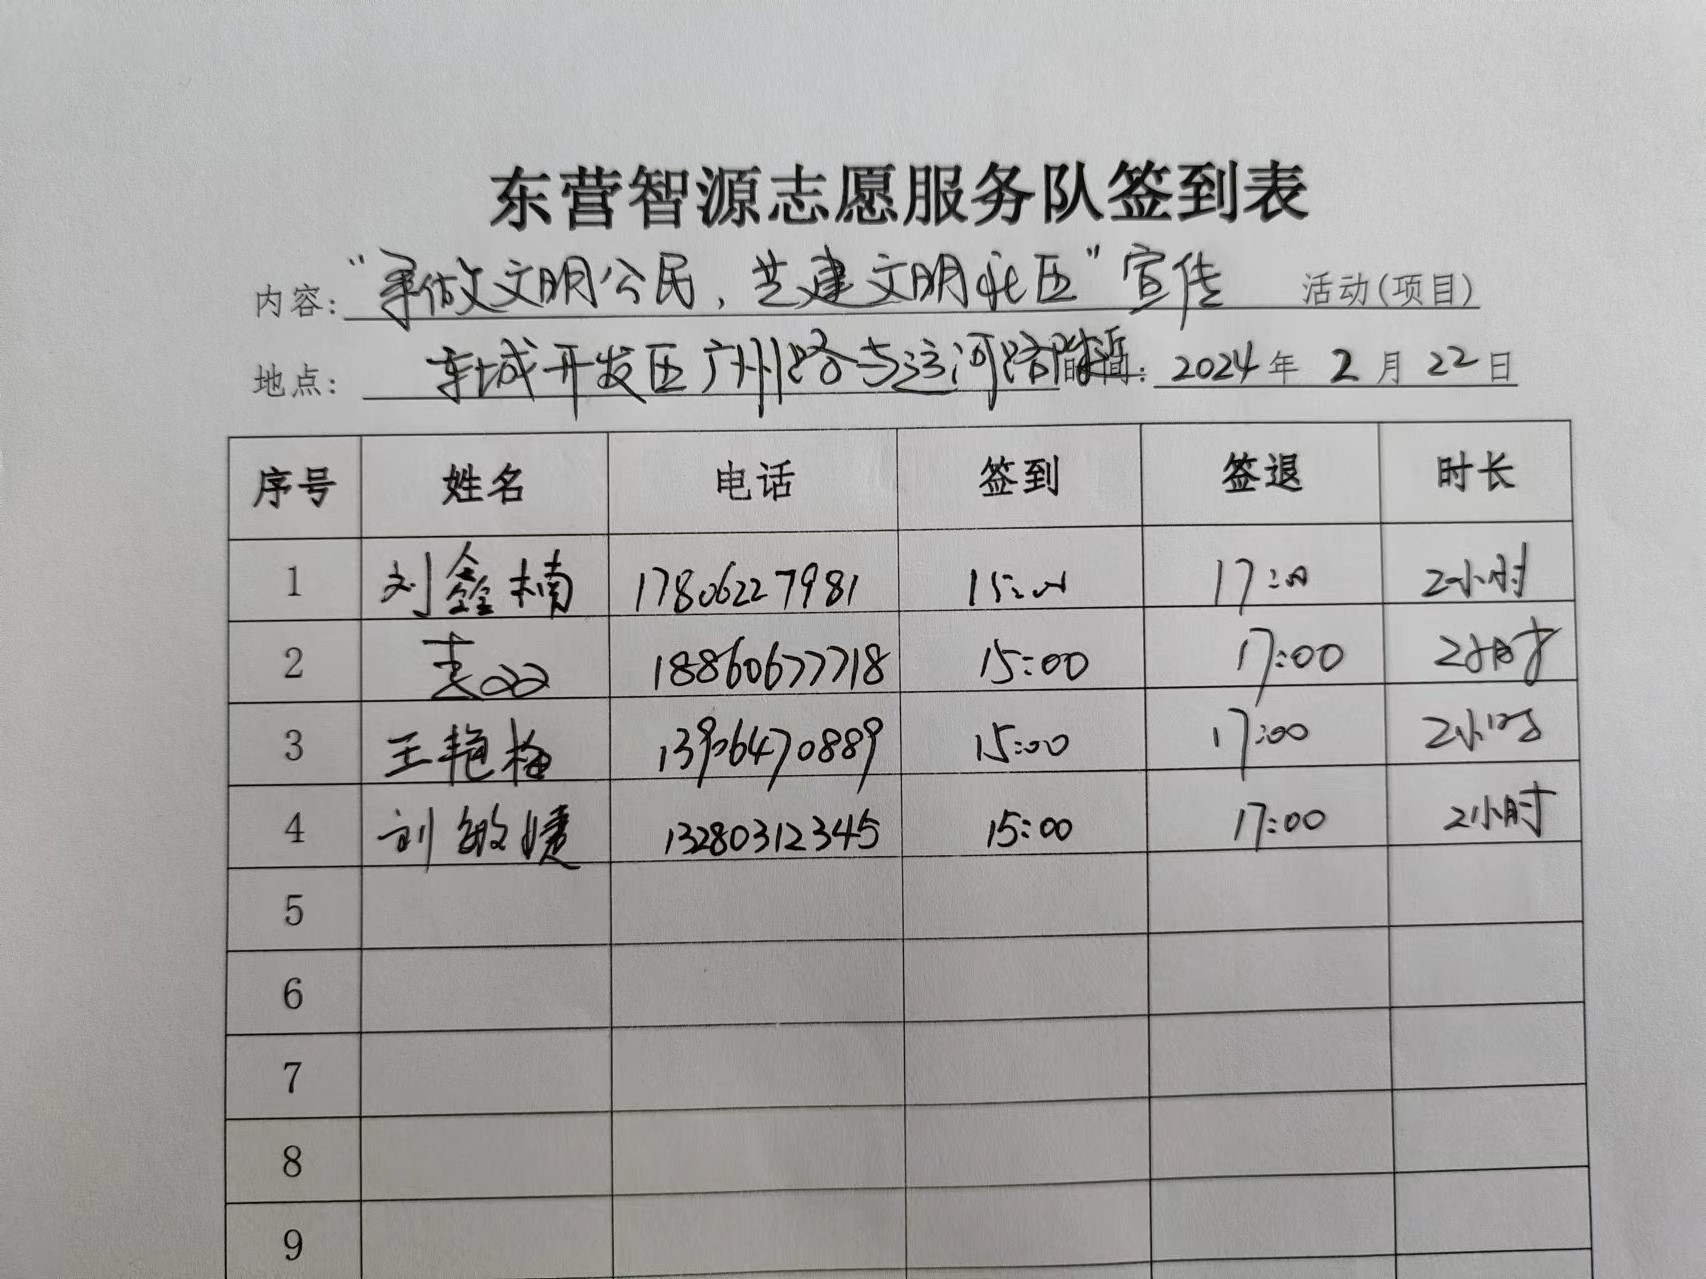 东营智源志愿服务队签到表
内容：“争做文明公民，共建文明社区”宣传 活动(项目)
地点：东城开发区广州路与运河路附近 时间：2024年 2月 22日
序号 姓名 电话 签到 签退 时长
1 刘鑫楠 17806227981 15:00 17:00 2小时
2 18860677718 15:00 17:00 2小时
3 王艳梅 13906470889 15:00 17:00 2小时
4 刘敏婕 13280312345 15:00 17:00 2小时
5
6
7
8
9